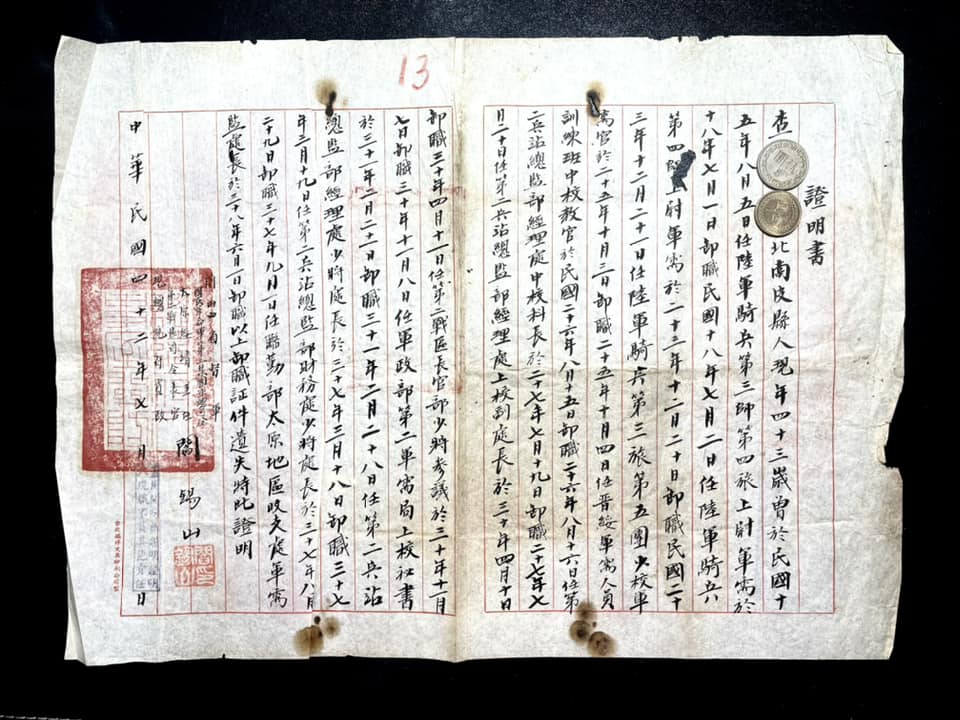 13
證明書
查
北南皮縣人現年四十三歲曾於民國十
五年八月五日任陸軍騎兵第三師第四旅上尉軍需於
十八年七月一日卸職民國十八年七月二日任陸軍騎兵
第四 上尉軍需於二十三年十二月二十日卸職民國二十
三年十二月二十一日任陸軍騎兵第三旅第五團少校軍
需官於二十五年十月三日卸職二十五年十月四日任晉綏軍需人員
訓練班中校教官於民國二十六年八月十五日卸職二十六年八月十六日任第
二兵站總監部經理處中校科長於二十七年七月十九日卸職二十七年七
月二十日任第二兵站總監部經理處上校副處長於三十年四月十日
卸職三十年四月十一日任第二戰區長官部少將參議於三十年十一月
七日卸職三十年十一月八日任軍政部第二軍需局上校秘書
於三十一年二月二十一日卸職三十一年二月二十八日任第二兵站
總監部經理處少將處長於三十七年三月十八日卸職三十七
年三月十九日任第二兵站總監部財務處少將處長於三十七年八月
二十九日卸職三十七年九月一日任聯勤部太原地區收支處軍需
監處長於三十八年六月一日卸職以上卸職証件遺失特此證明
閻錫山
中華民國四十二年七月 日